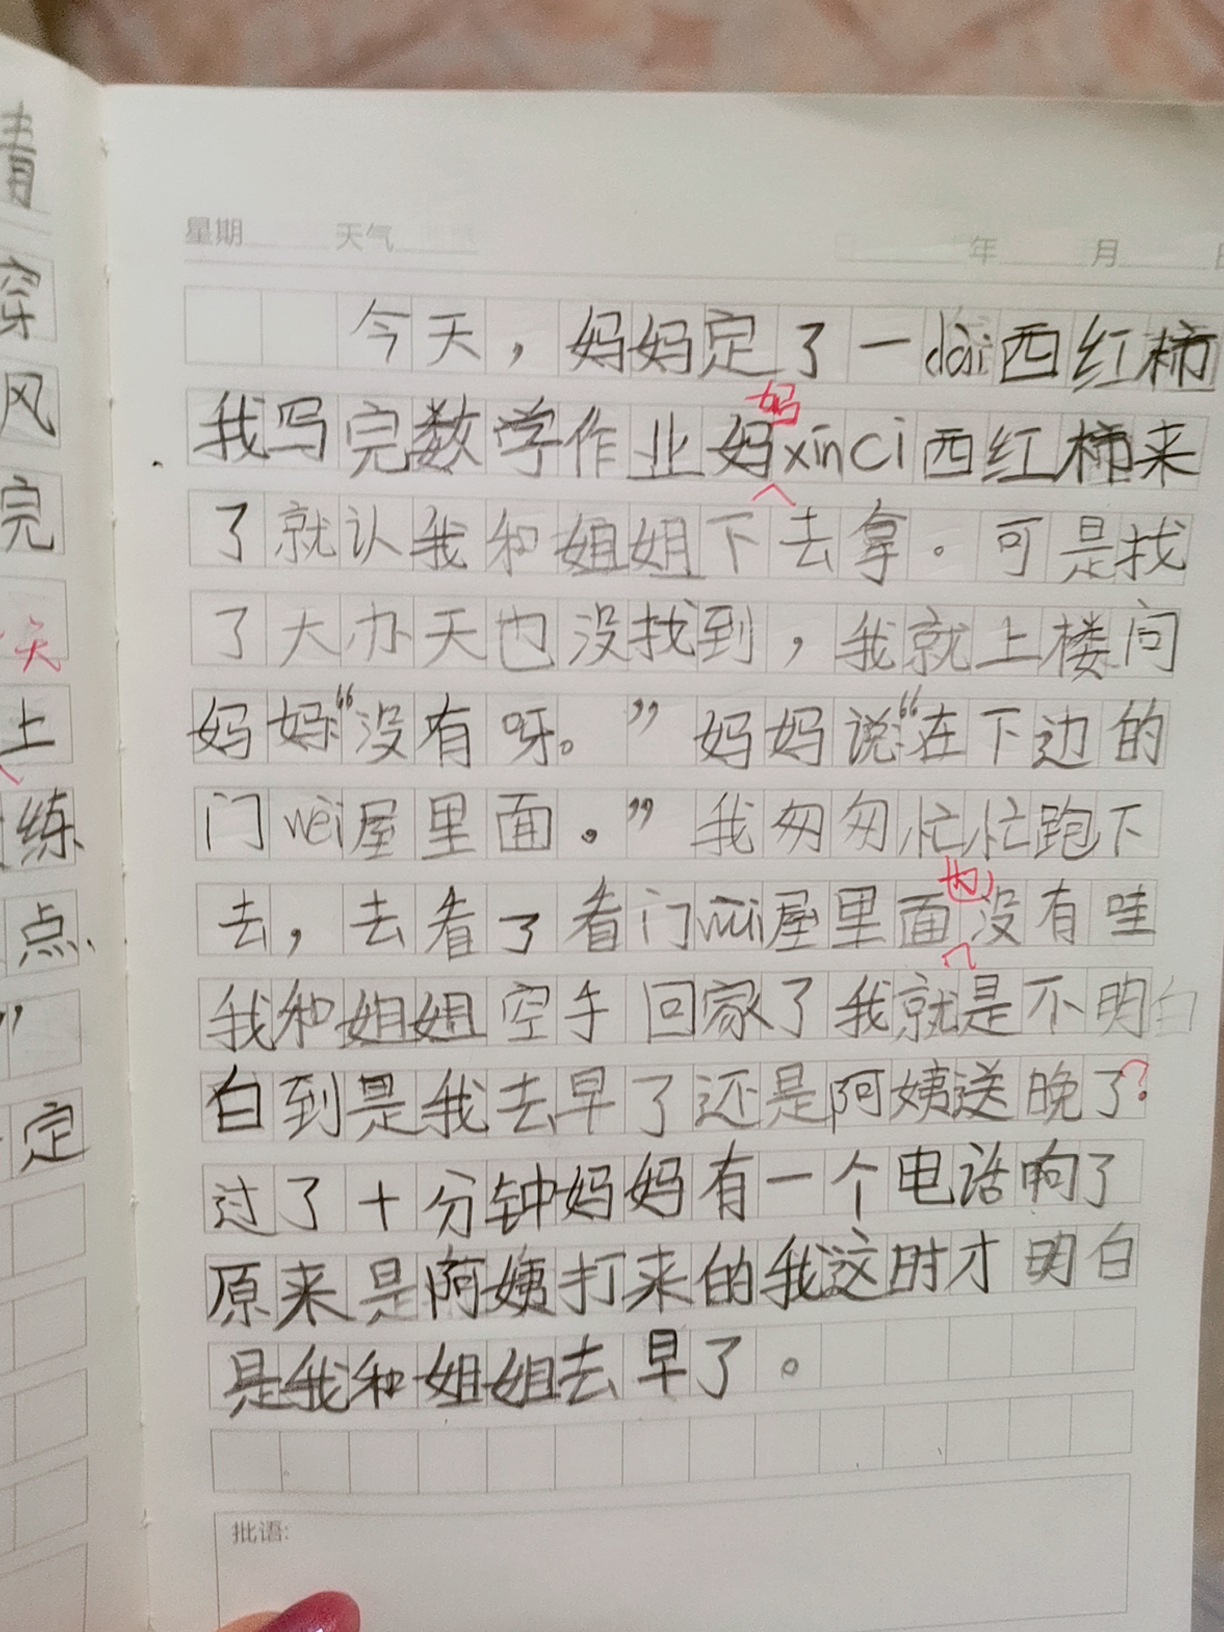 青
穿
风
完
天
上
练
点、
”
定
星期 天气 年 月
今天，妈妈定了一dài西红柿
妈
我写完数学作业妈xīnCi西红柿来
了就认我和姐姐下去拿。可是找
了大办天也没找到，我就上楼问
妈妈:“没有呀。”妈妈说:“在下边的
门wèi屋里面。”我匆匆忙忙跑下
也
去，去看了看门wèi屋里面没有哇
我和姐姐空手回家了我就是不明白
白到是我去早了还是阿姨送晚了?
过了十分钟妈妈有一个电话响了
原来是阿姨打来的我这时才明白
是我和姐姐去早了。
批语: